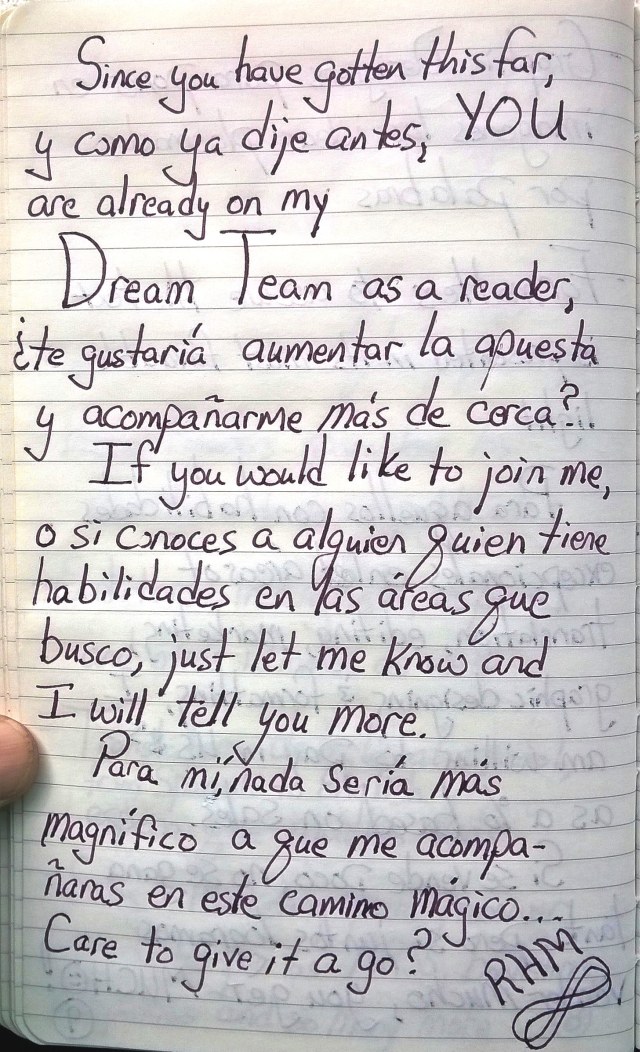 Since you have gotten this far,
y como ya dije antes, YOU
are already on my
Dream Team as a reader,
¿te gustaría aumentar la apuesta
y acompañarme más de cerca?
If you would like to join me,
o si conoces a alguien quien tiene
habilidades en las áreas que
busco, just let me know and
I will tell you more.
Para mí, nada sería más
magnífico a que me acompa-
ñaras en este camino mágico...
Care to give it a go?
RHM